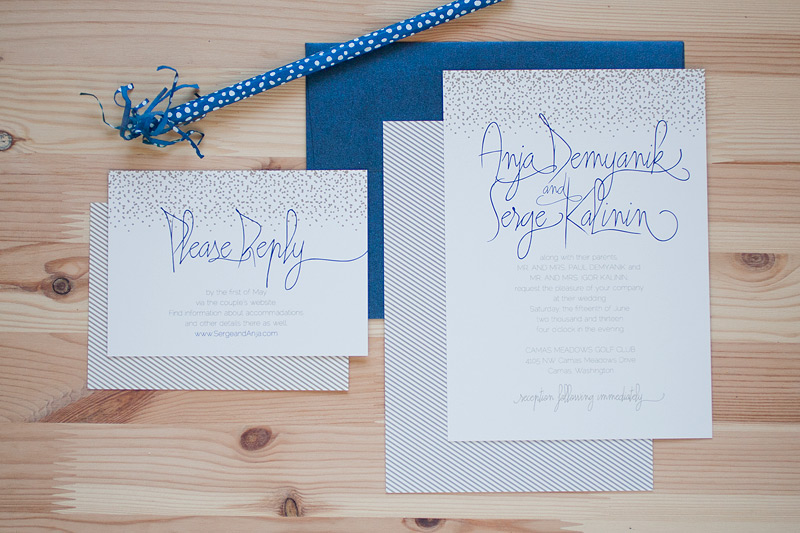 Please Reply
by the first of May
via the couple's website.
Find information about accommodations
and other details there as well.
www.SergeandAnja.com
Anja Demyanik
and
Serge Kalinin
along with their parents,
MR. AND MRS. PAUL DEMYANIK and
MR. AND MRS. IGOR KALININ
request the pleasure of your company
at their wedding
Saturday the fifteenth of June
two thousand and thirteen
four o'clock in the evening
CAMAS MEADOWS GOLF CLUB
4105 NW Camas Meadows Drive
Camas, Washington
reception following immediately